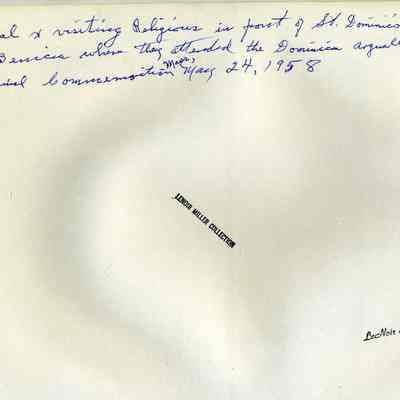 al & visiting Religious in front of St. Dominic's
Benicia where they attended the Dominica Arguello
Commemoration Mass, May 24, 1958
LENOIR MILLER COLLECTION